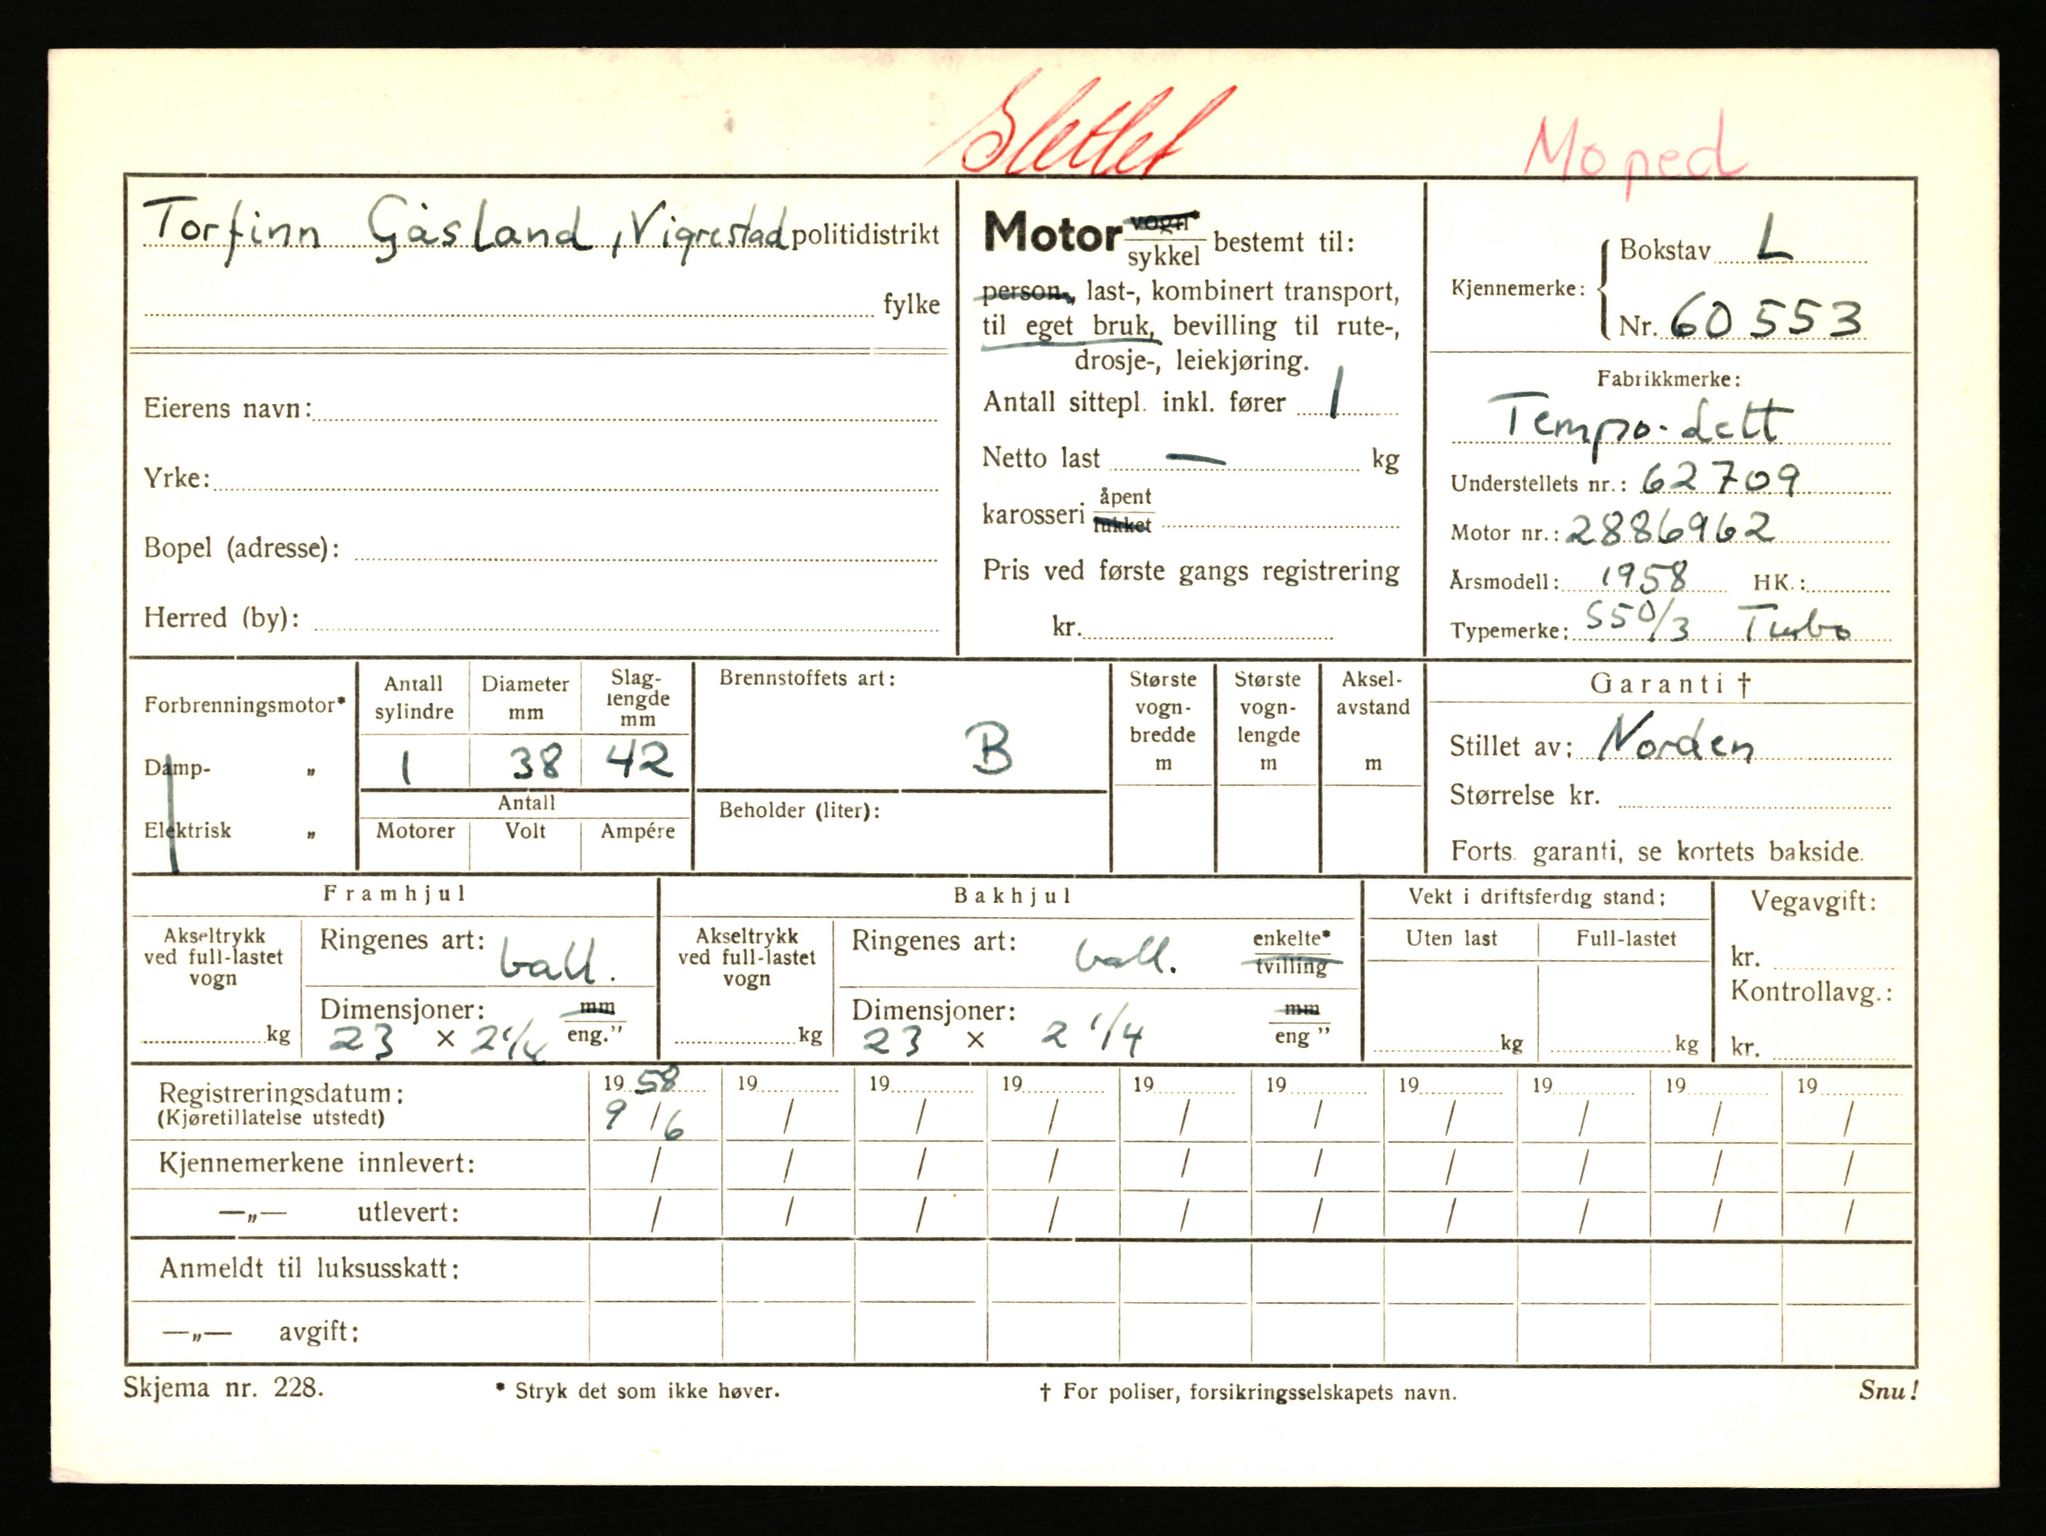 Slettet
Moped
Torfinn Gåsland, Vigrestad politidistrikt
fylke
Eierens navn:
Yrke:
Bopel (adresse):
Herred (by):
Motor vogn* / sykkel bestemt til:
person-, last-, kombinert transport,
til eget bruk, bevilling til rute-,
drosje-, leiekjøring.
Antall sittepl. inkl. fører 1
Netto last — kg
karosseri åpent / lukket
Pris ved første gangs registrering
kr.
Kjennemerke: { Bokstav L
Nr. 60553
Fabrikkmerke:
Tempo-lett
Understellets nr.: 62709
Motor nr.: 2886962
Årsmodell: 1958 HK.:
Typemerke: S50/3 Turbo
Forbrenningsmotor*
Damp- "
Elektrisk "
Antall sylindre
Diameter mm
Slaglengde mm
1 38 42
Antall
Motorer Volt Ampére
Brennstoffets art:
B
Beholder (liter):
Største vogn-bredde m
Største vogn-lengde m
Aksel-avstand m
Garanti †
Stillet av: Norden
Størrelse kr.
Forts. garanti, se kortets bakside.
Framhjul
Akseltrykk ved full-lastet vogn
kg
Ringenes art: ball.
Dimensjoner: mm / eng."
23 × 2 1/4
Bakhjul
Akseltrykk ved full-lastet vogn
kg
Ringenes art: ball. enkelte* / tvilling
Dimensjoner: mm / eng "
23 × 2 1/4
Vekt i driftsferdig stand:
Uten last Full-lastet
kg kg
Vegavgift:
kr.
Kontrollavg.:
kr.
Registreringsdatum: 19 58 19 19 19 19 19 19 19 19 19
(Kjøretillatelse utstedt) 9/6 / / / / / / / / /
Kjennemerkene innlevert: / / / / / / / / / /
—„— utlevert: / / / / / / / / / /
Anmeldt til luksusskatt:
—„— avgift:
Skjema nr. 228. * Stryk det som ikke høver. † For poliser, forsikringsselskapets navn. Snu!